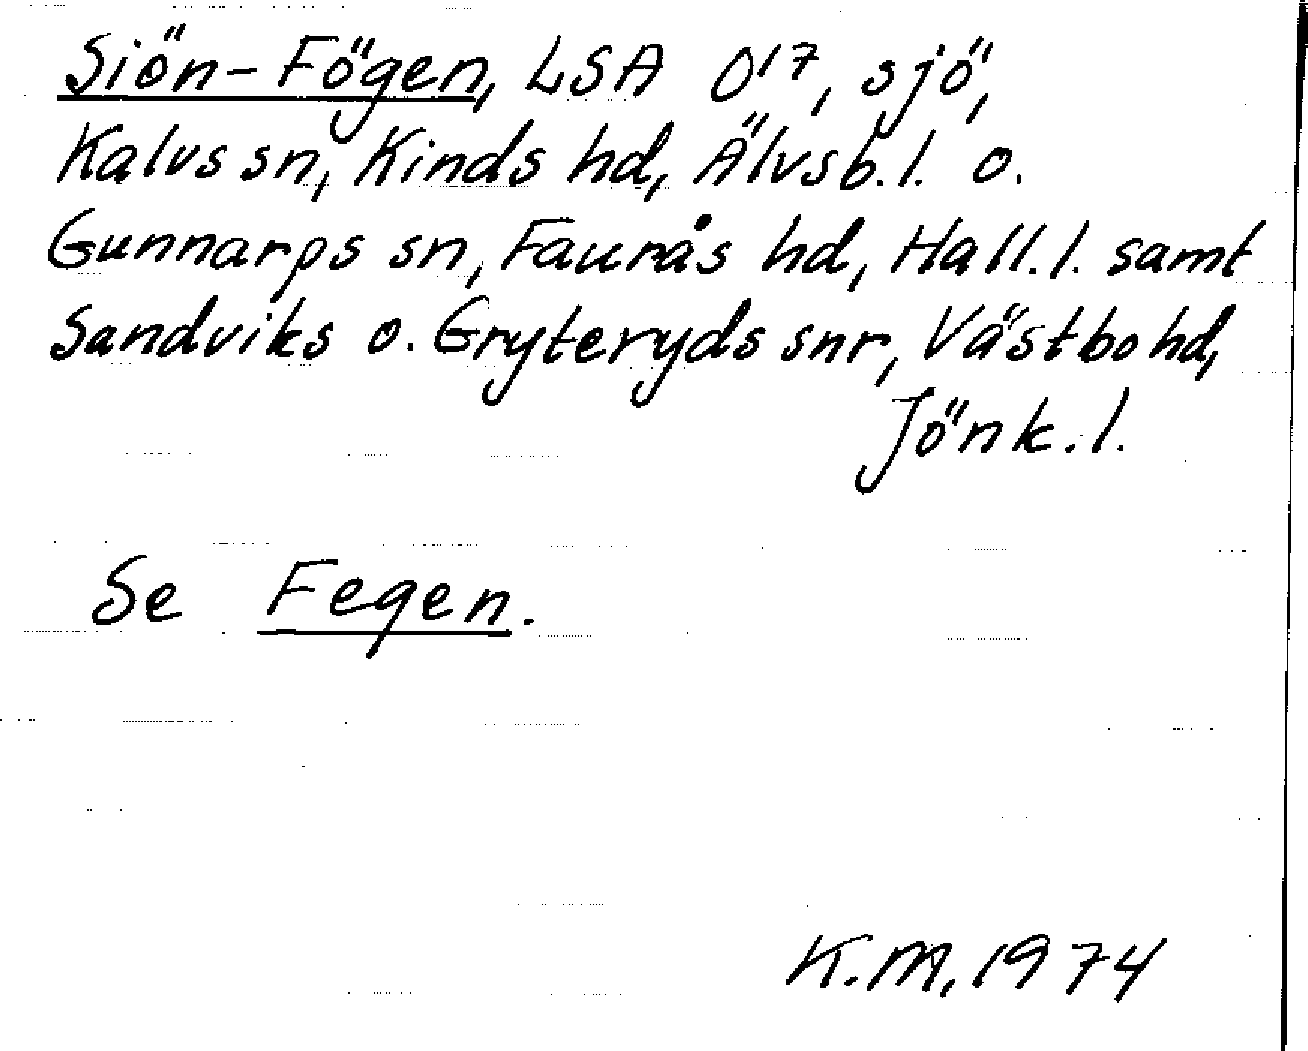 Siön-Fögen, LSA O17, sjö,
Kalvs sn, Kinds hd, Älvsb.l. o.
Gunnarps sn, Faurås hd, Hall.l. samt
Sandviks o. Gryteryds snr, Västbo hd,
Jönk.l.
Se Fegen.
K.M. 1974